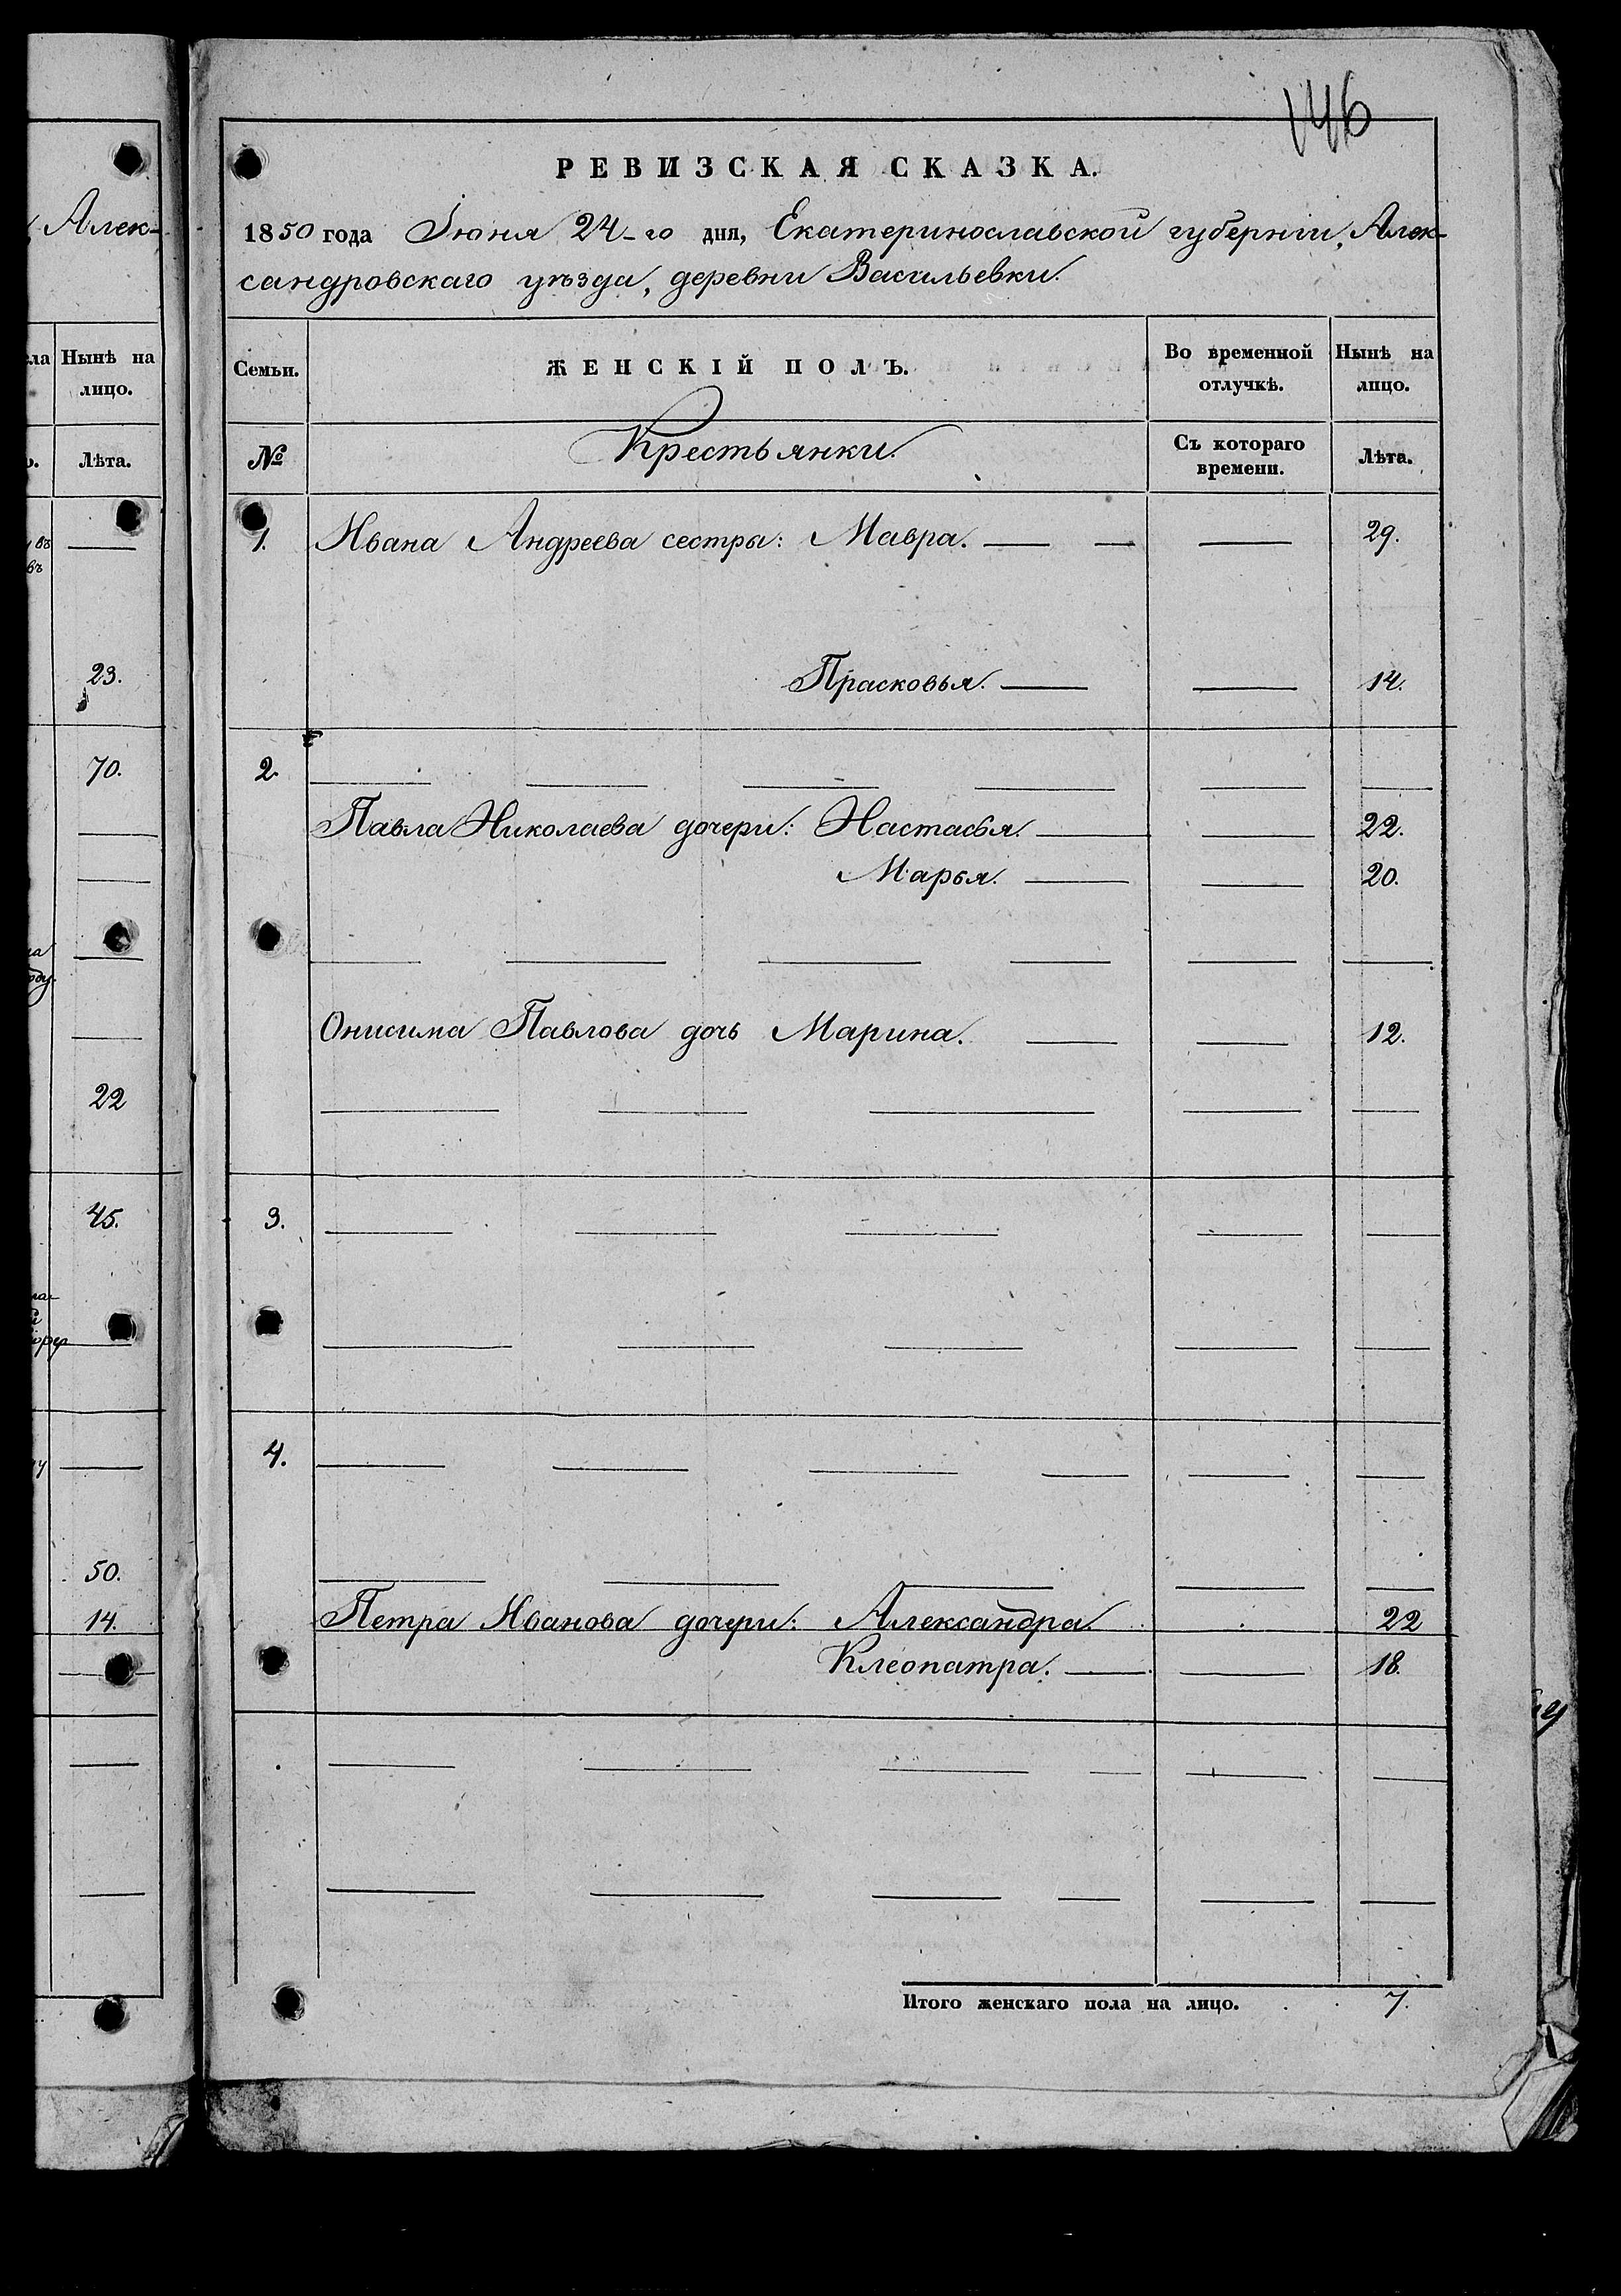 146
РЕВИЗСКАЯ СКАЗКА.
1850 года Іюня 24-го дня, Екатеринославской губерніи, Алек-
сандровскаго уѣзда, деревни Васильевки.
Семьи. ЖЕНСКІЙ ПОЛЪ. Во временной отлучкѣ. Нынѣ на лицо.
№ Крестьянки. Съ котораго времени. Лѣта.
1. Ивана Андреева сестры: Мавра. — — — 29.
Прасковья. — — 14.
2. — — — — — —
Павла Николаева дочери: Настасья. — — 22.
Марья. — — 20.
— — — — — —
Онисима Павлова дочь Марина. — — 12.
— — — — —
3. — — — — —
— — — — —
4. — — — — — —
— — — — —
Петра Иванова дочери: Александра. 22
Клеопатра. — — 18.
— — — — — —
— — — — — —
Итого женскаго пола на лицо. . . 7.
Алек-
Нынѣ на
лицо.
Лѣта.
—
23.
70.
—
—
—
—
22
45.
—
—
50.
14.
—
—
—